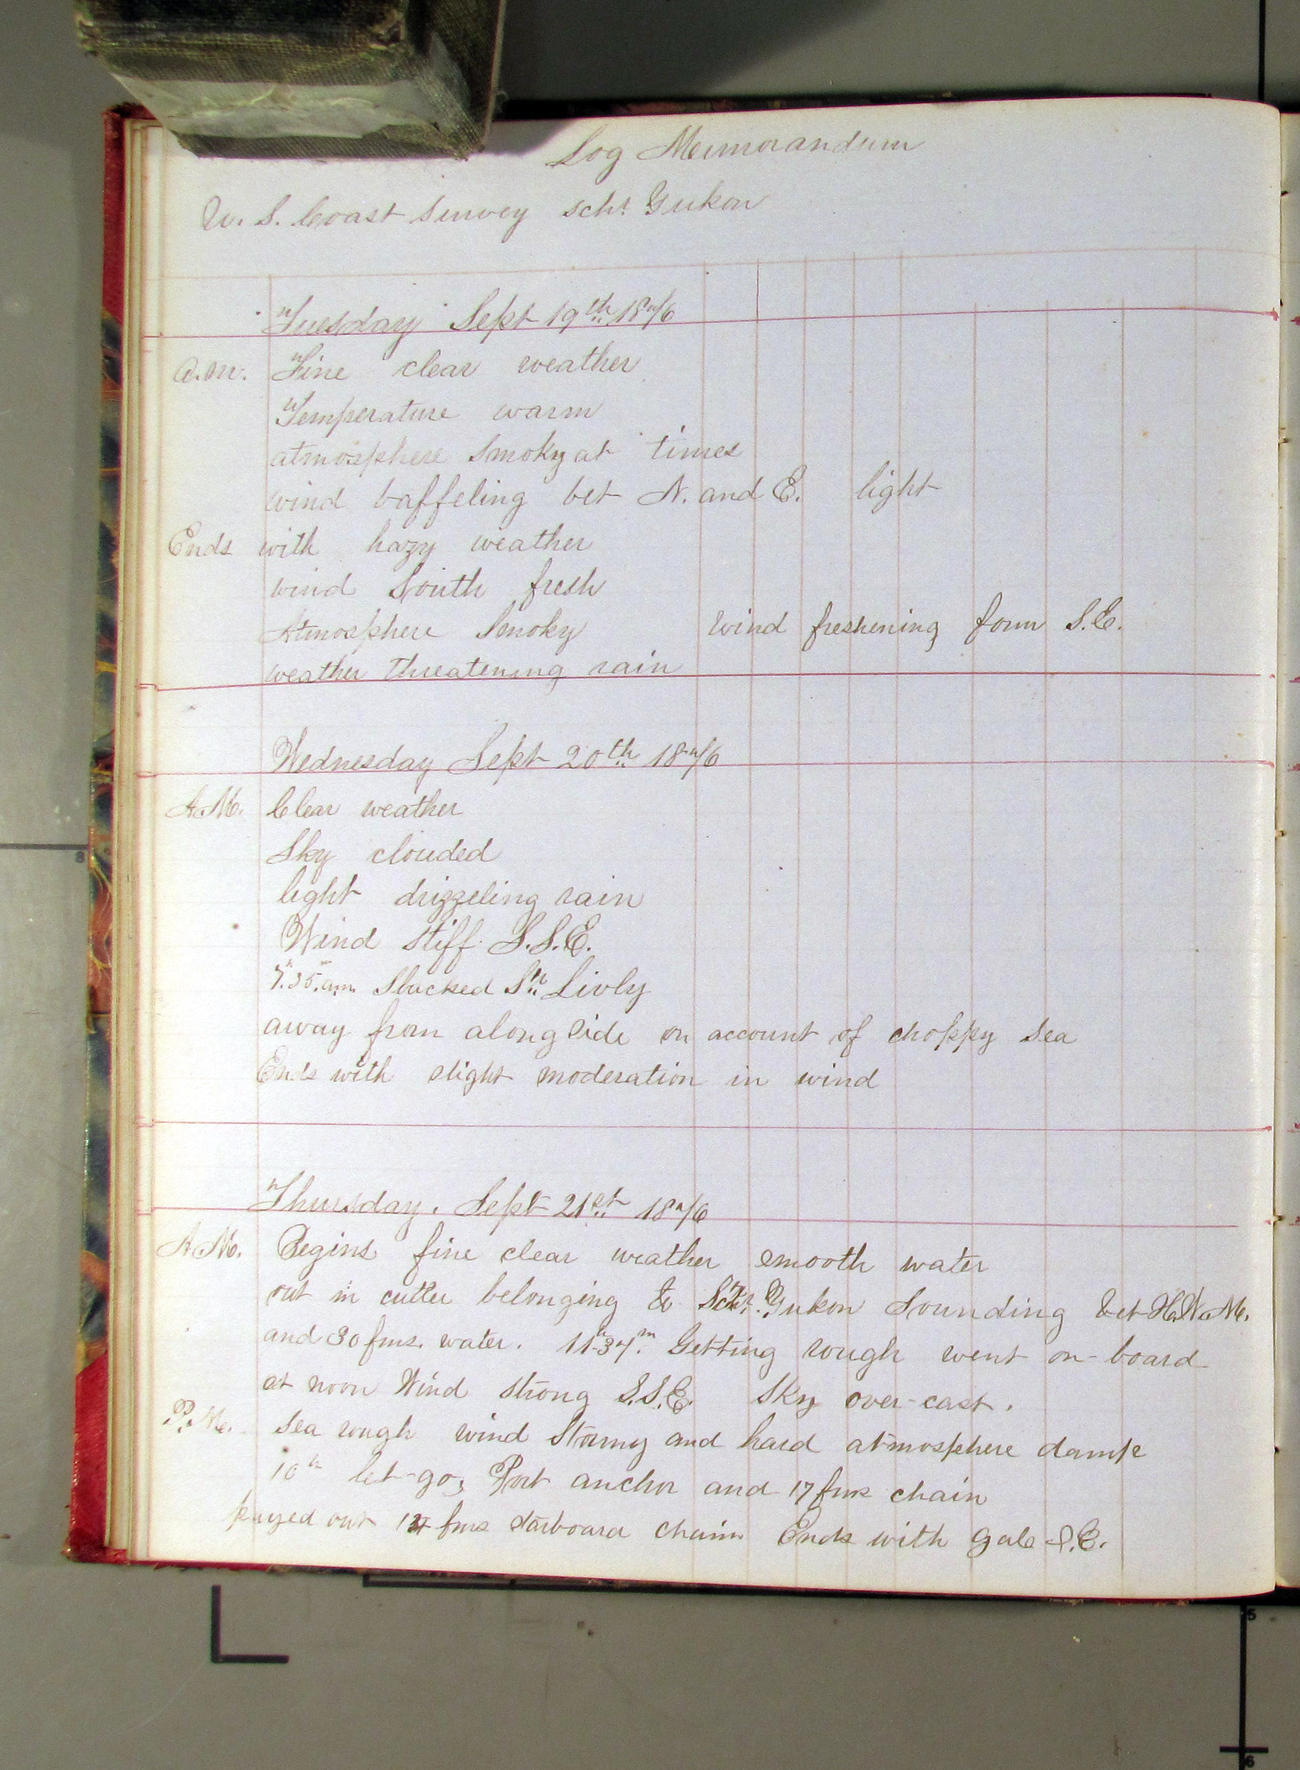 Log Memorandum
U. S. Coast Survey schr. Yukon
Tuesday Sept 19th 1876
A.M. Fine clear weather
Temperature warm
atmosphere Smoky at times
wind baffeling bet N. and E. light
Ends with hazy weather
wind South fresh
Atmosphere Smoky wind freshening form S.E.
weather threatening rain
Wednesday Sept 20th 1876
A.M. Clear weather
Sky clouded
light drizzeling rain
Wind Stiff S.S.E.
7.h35.m am Slacked Str Livly
away from along Side on account of choppy Sea
Ends with slight moderation in wind
Thursday. Sept 21st 1876
A.M. Begins fine clear weather smooth water
out in cutter belonging to Schr. Yukon Sounding bet H.W.M.
and 30 fms. water. 11h34m. Getting rough went on-board
at noon Wind strong S.S.E. Sky over-cast.
P.M. Sea rough wind Strong and hard atmosphere damp
10h let-go, Port anchor and 17 fms chain
payed out fms starboard chain Ends with Gale S.E.